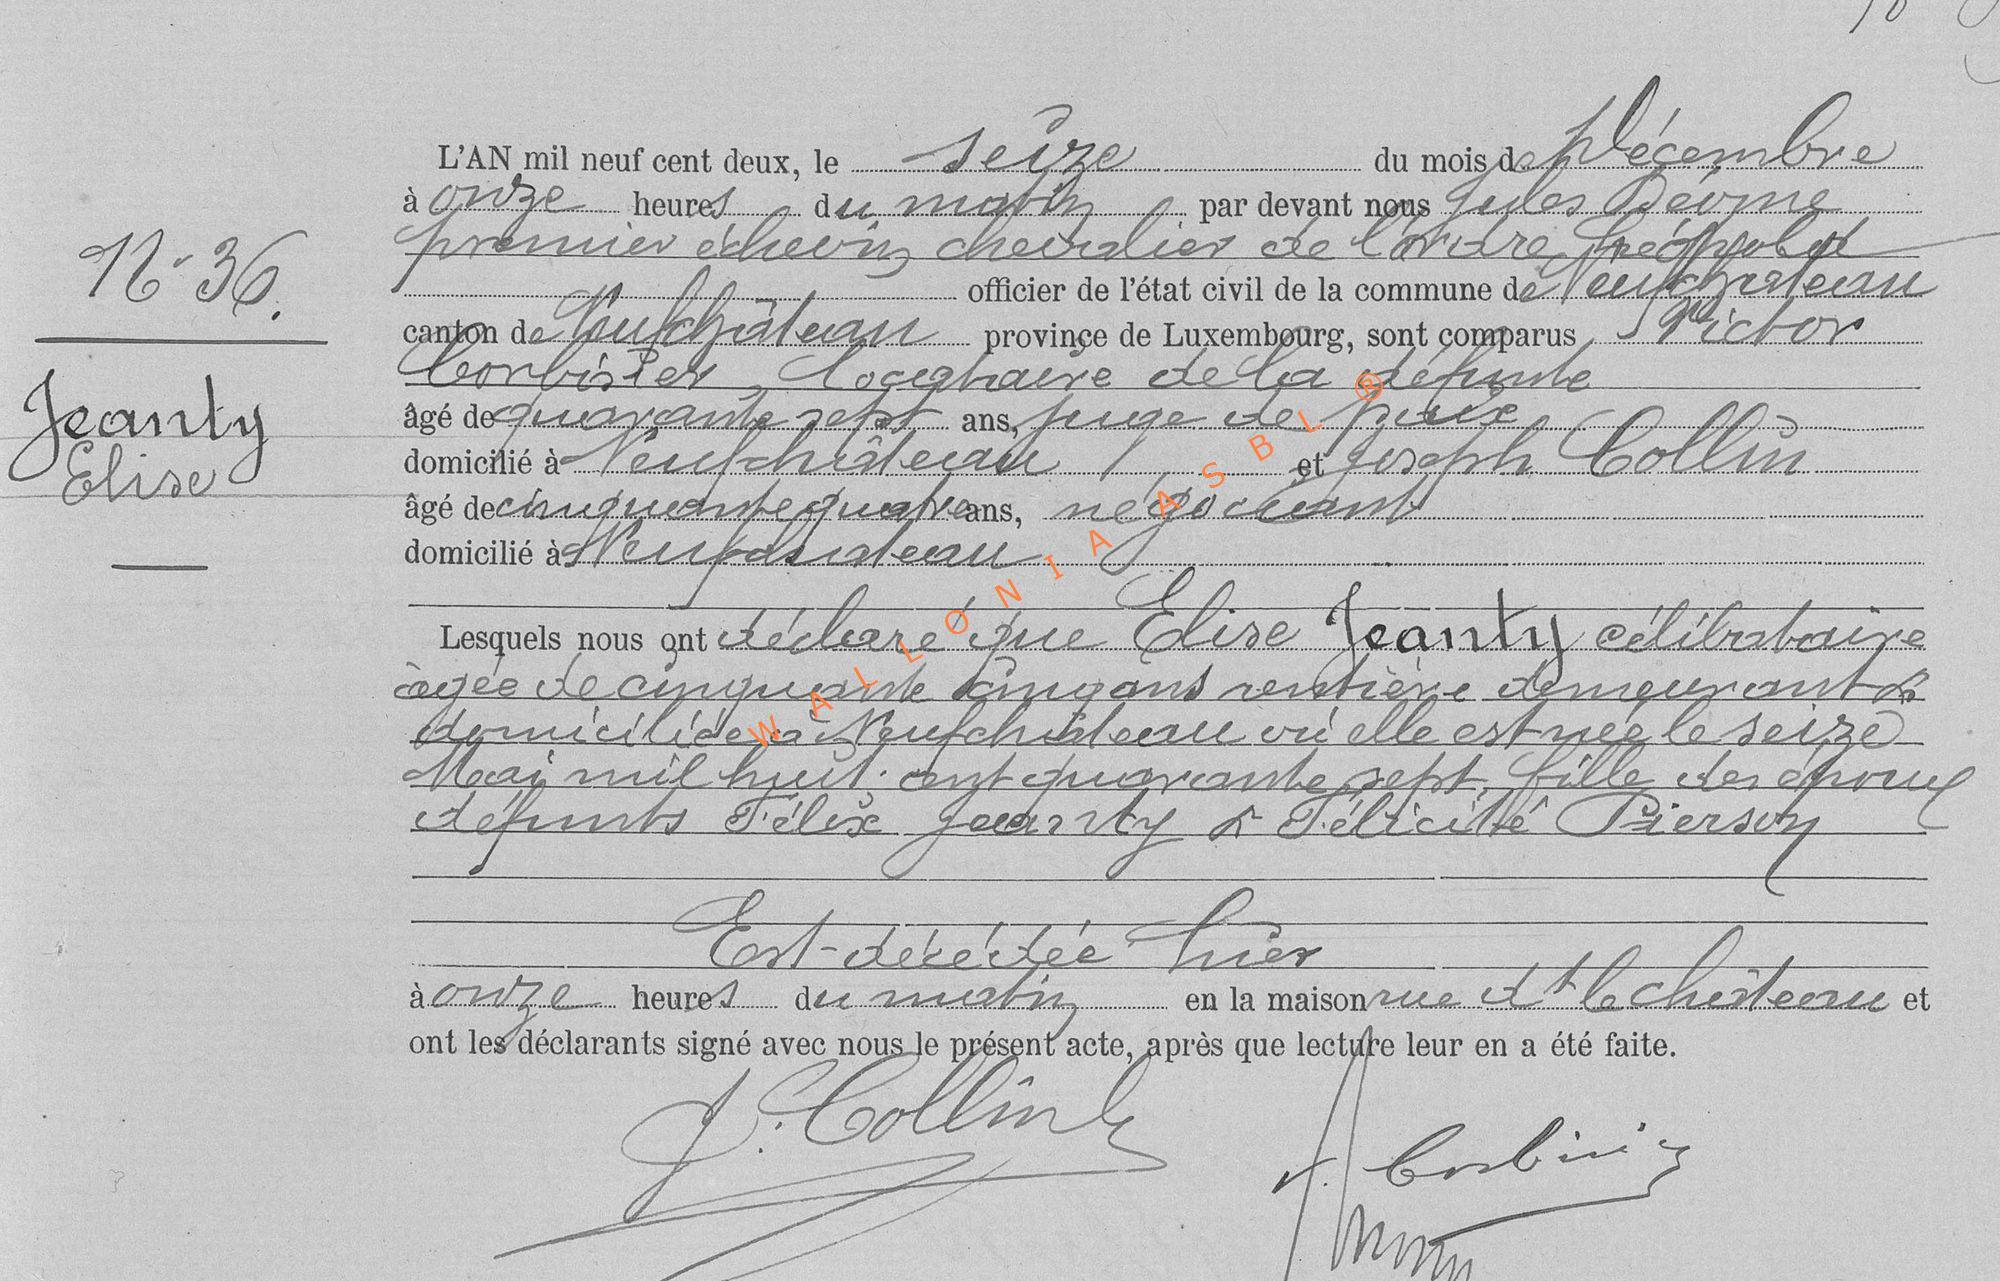 N° 36.
Jeanty
Elise
L'AN mil neuf cent deux, le seize du mois de Décembre
à onze heures du matin par devant nous Jules
premier échevin chevalier de l'ordre Léopold
officier de l'état civil de la commune de Neufchâteau
canton de Neufchâteau province de Luxembourg, sont comparus Victor
Corbisier, locataire de la défunte
âgé de quarante sept ans, juge de paix
domicilié à Neufchâteau, et Joseph Collin
âgé de cinquante quatre ans, négociant
domicilié à Neufchâteau
Lesquels nous ont déclaré que Elise Jeanty célibataire
âgée de cinquante cinq ans rentière demeurant &
domiciliée à Neufchâteau où elle est née le seize
Mai mil huit cent quarante sept, fille des époux
défunts Félix Jeanty & Félicité Pierson
Est décédée hier
à onze heures du matin en la maison rue dt le château et
ont les déclarants signé avec nous le présent acte, après que lecture leur en a été faite.
J. Collin
V. Corbisier
WALLONIA ASBL ®